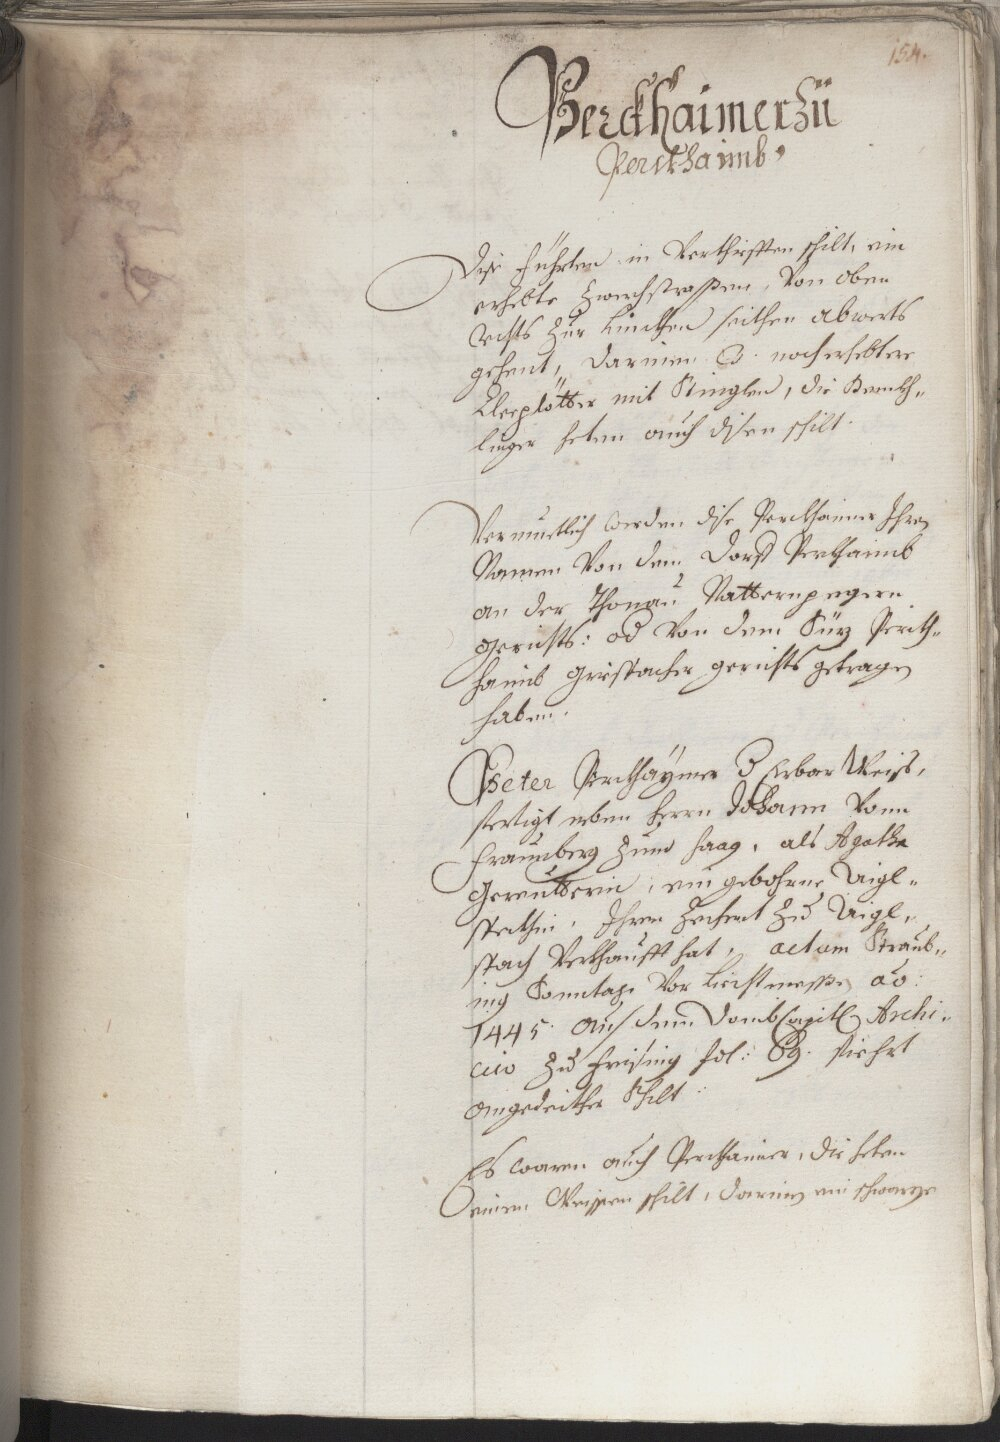 154.
Perckhaimer zu
Perckhaimb,
Dise führten in Verthifften schilt, ein
erhebte Zwerchstrassen, Von oben
rechts zur Linckhen seithen abwerts
gehent, darinen 3. noch erhebtere
Kleeplötter mit Stinglen, die
linger heten auch disen schilt.
Vermuetlich werden dise Perckhaimer Ihren
Namen Von dem Dorff Perkhaimb
an der Thonau Natternpergern
gerichts: od Von dem Siz Perckh-
haimb Griespacher gerichts getragen
haben.
Peter Perckhaymer d Erbar Weiss,
fertigt neben herrn Johann Vonn
Fraunberg zum haag, als Agatha
Gereutterin, ein gebohrne Aigl-
speckhin, Ihren Zechent zu Aigl-
spach Verkhaufft hat, actum Straub-
ing Sonntags Vor Liechtmessen ao:
1445. aus dem Domb Capitl Archi-
vio zu Freising fol: 69. fiehrt
angedeithen Schilt.
Es waren auch Perckhaimer, die heten
einen Weissen schilt, darinen ein schwarze